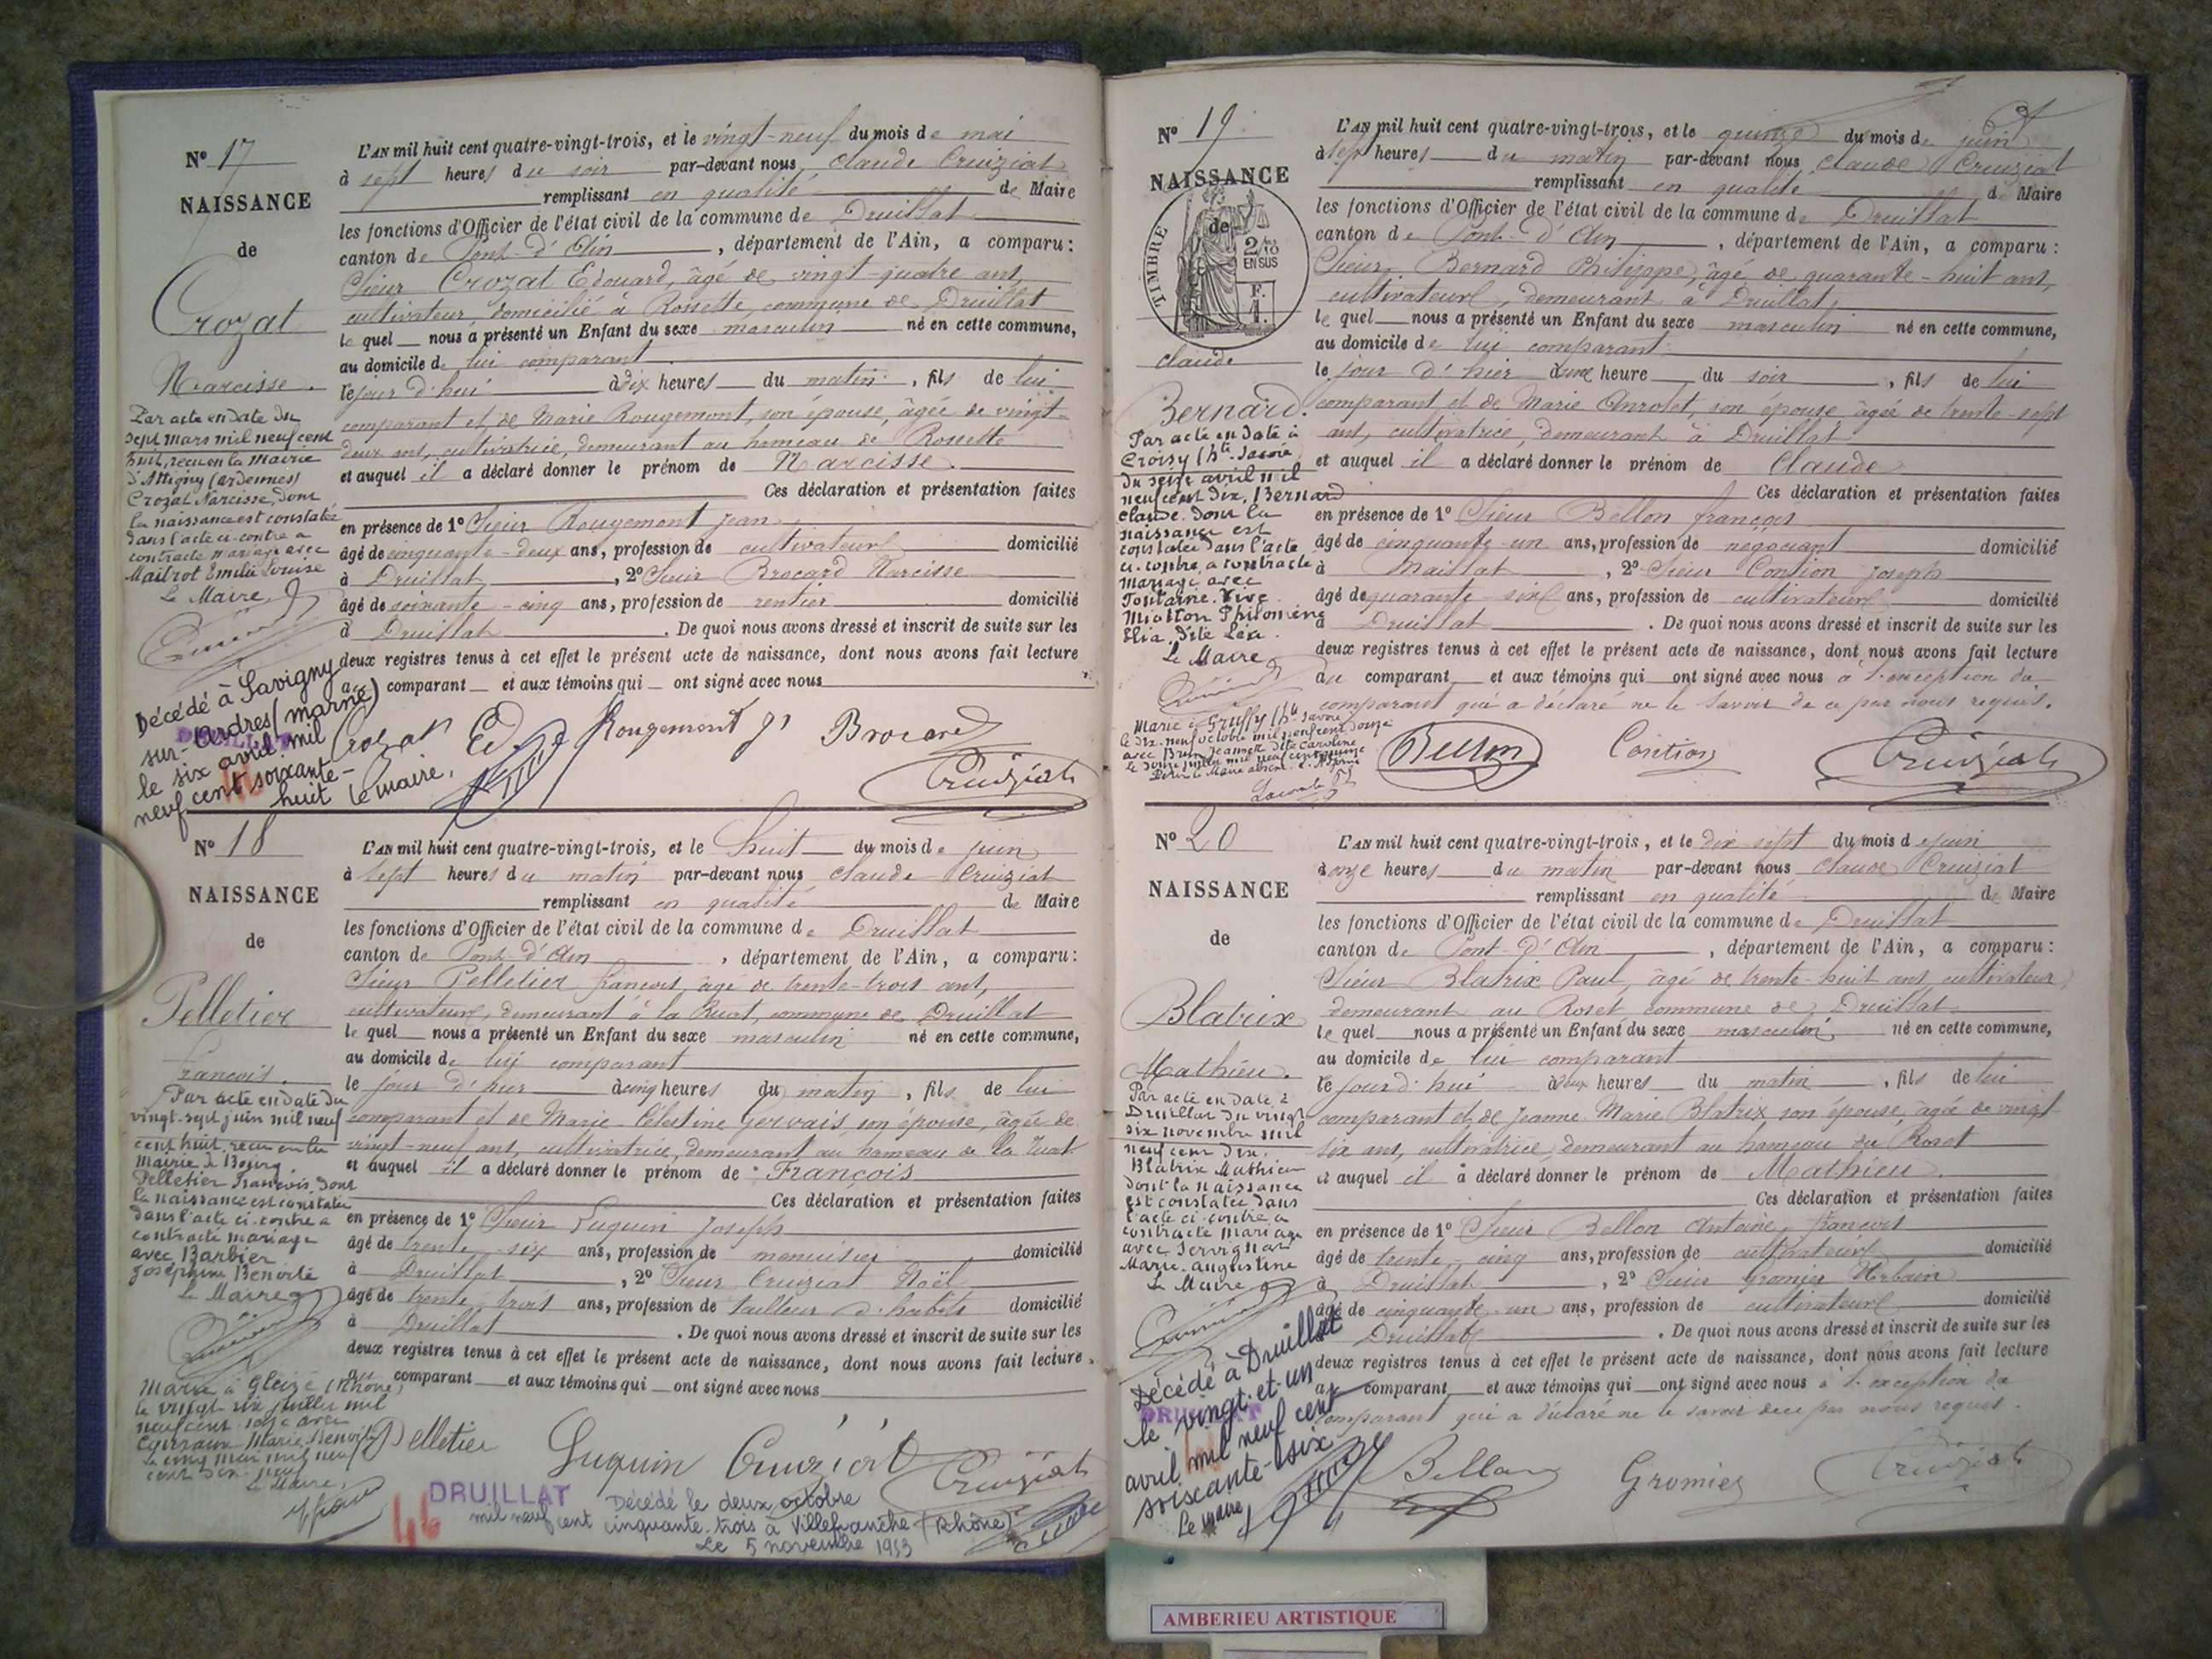 N° 17
NAISSANCE
de
Crozat
Narcisse.
Par acte en date du
sept mars mil neuf cent
huit, recu en la Mairie
d'Attigny (ardennes)
Crozat Narcisse, dont
la naissance est constatée
dans l'acte ci-contre a
contracté mariage avec
Maitrot Emilie Louise
Le Maire
Décédé à Savigny
sur-Ardres (marne)
le six avril mil
neuf cent soixante-
huit le maire.
DRUILLAT
L'AN mil huit cent quatre-vingt-trois, et le vingt-neuf du mois de mai
à sept heures du soir par-devant nous Claude Cruiziat
remplissant en qualité de Maire
les fonctions d'Officier de l'état civil de la commune de Druillat
canton de Pont-d'Ain, département de l'Ain, a comparu:
Sieur Crozat Edouard, âgé de vingt-quatre ans,
cultivateur domicilié à Rossette, commune de Druillat
le quel nous a présenté un Enfant du sexe masculin né en cette commune,
au domicile de lui comparant
le jour d'hui à dix heures du matin, fils de lui
comparant et de Marie Rougemont, son épouse, âgée de vingt-
deux ans, cultivatrice, demeurant au hameau de Rossette
et auquel il a déclaré donner le prénom de Narcisse.
Ces déclaration et présentation faites
en présence de 1° Sieur Rougemont Jean
âgé de cinquante-deux ans, profession de cultivateur domicilié
à Druillat, 2° Sieur Brocard Narcisse
âgé de soixante-cinq ans, profession de rentier domicilié
à Druillat. De quoi nous avons dressé et inscrit de suite sur les
deux registres tenus à cet effet le présent acte de naissance, dont nous avons fait lecture
au comparant et aux témoins qui ont signé avec nous
Crozat Ed Rougemont Jn Brocard
Cruiziat
N° 18
NAISSANCE
de
Pelletier
François.
Par acte en date du
vingt-sept juin mil neuf
cent huit, recu en la
Mairie de Bourg
Pelletier François, dont
la naissance est constatée
dans l'acte ci-contre a
contracté mariage
avec Barbier
Joséphine Benoite
Le Maire
Marié à Gleizé (Rhône)
le vingt-six juillet mil
neuf cent avec
Marie Benoite
le cinq mai mil neuf
cent dix-neuf
Le Maire,
L'AN mil huit cent quatre-vingt-trois, et le huit du mois de juin
à sept heures du matin par-devant nous Claude Cruiziat
remplissant en qualité de Maire
les fonctions d'Officier de l'état civil de la commune de Druillat
canton de Pont-d'Ain, département de l'Ain, a comparu:
Sieur Pelletier François, âgé de trente-trois ans,
cultivateur, demeurant à la Ruat, commune de Druillat
le quel nous a présenté un Enfant du sexe masculin né en cette commune,
au domicile de lui comparant
le jour d'hier à cinq heures du matin, fils de lui
comparant et de Marie-Célestine Gervais, son épouse, âgée de
vingt-neuf ans, cultivatrice, demeurant au hameau de la Ruat
et auquel il a déclaré donner le prénom de François
Ces déclaration et présentation faites
en présence de 1° Sieur Luguin Joseph
âgé de trente-six ans, profession de menuisier domicilié
à Druillat, 2° Sieur Cruiziat Noël
âgé de trente-trois ans, profession de tailleur d'habits domicilié
à Druillat. De quoi nous avons dressé et inscrit de suite sur les
deux registres tenus à cet effet le présent acte de naissance, dont nous avons fait lecture
au comparant et aux témoins qui ont signé avec nous
Pelletier Luguin Cruiziat Cruiziat
DRUILLAT
46
Décédé le deux octobre
mil neuf cent cinquante-trois à Villefranche (Rhône)
Le 5 novembre 1953
N° 19
NAISSANCE
de
TIMBRE
2/10
EN SUS
F.
1.
Claude
Bernard.
Par acte en date à
Croisy (hte Savoie)
du seize avril mil
neuf cent dix, Bernard
Claude dont la
naissance est
constatée dans l'acte
ci-contre, a contracté
mariage avec
Fontaine-Vive
Miotton Philomène
Elia dite Léa.
Le Maire
Marié à Gruffy (hte Savoie)
le dix-neuf octobre mil neuf cent douze
avec Brun Jeannette dite Caroline
L'AN mil huit cent quatre-vingt-trois, et le quinze du mois de juin
à sept heures du matin par-devant nous Claude Cruiziat
remplissant en qualité de Maire
les fonctions d'Officier de l'état civil de la commune de Druillat
canton de Pont-d'Ain, département de l'Ain, a comparu:
Sieur Bernard Philippe, âgé de quarante-huit ans,
cultivateur, demeurant à Druillat,
le quel nous a présenté un Enfant du sexe masculin né en cette commune,
au domicile de lui comparant
le jour d'hier à une heure du soir, fils de lui
comparant et de Marie Anrolet, son épouse, âgée de trente-sept
ans, cultivatrice, demeurant à Druillat
et auquel il a déclaré donner le prénom de Claude
Ces déclaration et présentation faites
en présence de 1° Sieur Bellon François
âgé de cinquante-un ans, profession de négociant domicilié
à Maillat, 2° Sieur Contion Joseph
âgé de quarante-six ans, profession de cultivateur domicilié
à Druillat. De quoi nous avons dressé et inscrit de suite sur les
deux registres tenus à cet effet le présent acte de naissance, dont nous avons fait lecture
au comparant et aux témoins qui ont signé avec nous à l'exception du
comparant qui a déclaré ne le savoir de ce par nous requis.
Bellon Contion Cruiziat
N° 20
NAISSANCE
de
Blatrix
Mathieu.
Par acte en date à
Druillat du vingt
six novembre mil
neuf cent dix,
Blatrix Mathieu
dont la naissance
est constatée dans
l'acte ci-contre a
contracté mariage
avec Servignat
Marie-Augustine
Le Maire
Décédé à Druillat
le vingt-et-un
avril mil neuf cent
soixante-six
Le maire
DRUILLAT
L'AN mil huit cent quatre-vingt-trois, et le dix sept du mois de juin
à onze heures du matin par-devant nous Claude Cruiziat
remplissant en qualité de Maire
les fonctions d'Officier de l'état civil de la commune de Druillat
canton de Pont-d'Ain, département de l'Ain, a comparu:
Sieur Blatrix Paul, âgé de trente-huit ans, cultivateur
demeurant au Roset commune de Druillat
le quel nous a présenté un Enfant du sexe masculin né en cette commune,
au domicile de lui comparant
le jour d'hui à deux heures du matin, fils de lui
comparant et de Jeanne Marie Blatrix, son épouse, âgée de vingt-
six ans, cultivatrice, demeurant au hameau du Roset
et auquel il a déclaré donner le prénom de Mathieu.
Ces déclaration et présentation faites
en présence de 1° Sieur Bellon Antoine, François
âgé de trente-cinq ans, profession de cultivateur domicilié
à Druillat, 2° Sieur Gromier Urbain
âgé de cinquante-un ans, profession de cultivateur domicilié
à Druillat. De quoi nous avons dressé et inscrit de suite sur les
deux registres tenus à cet effet le présent acte de naissance, dont nous avons fait lecture
au comparant et aux témoins qui ont signé avec nous à l'exception du
comparant qui a déclaré ne le savoir de ce par nous requis.
Bellon Gromier Cruiziat
AMBERIEU ARTISTIQUE